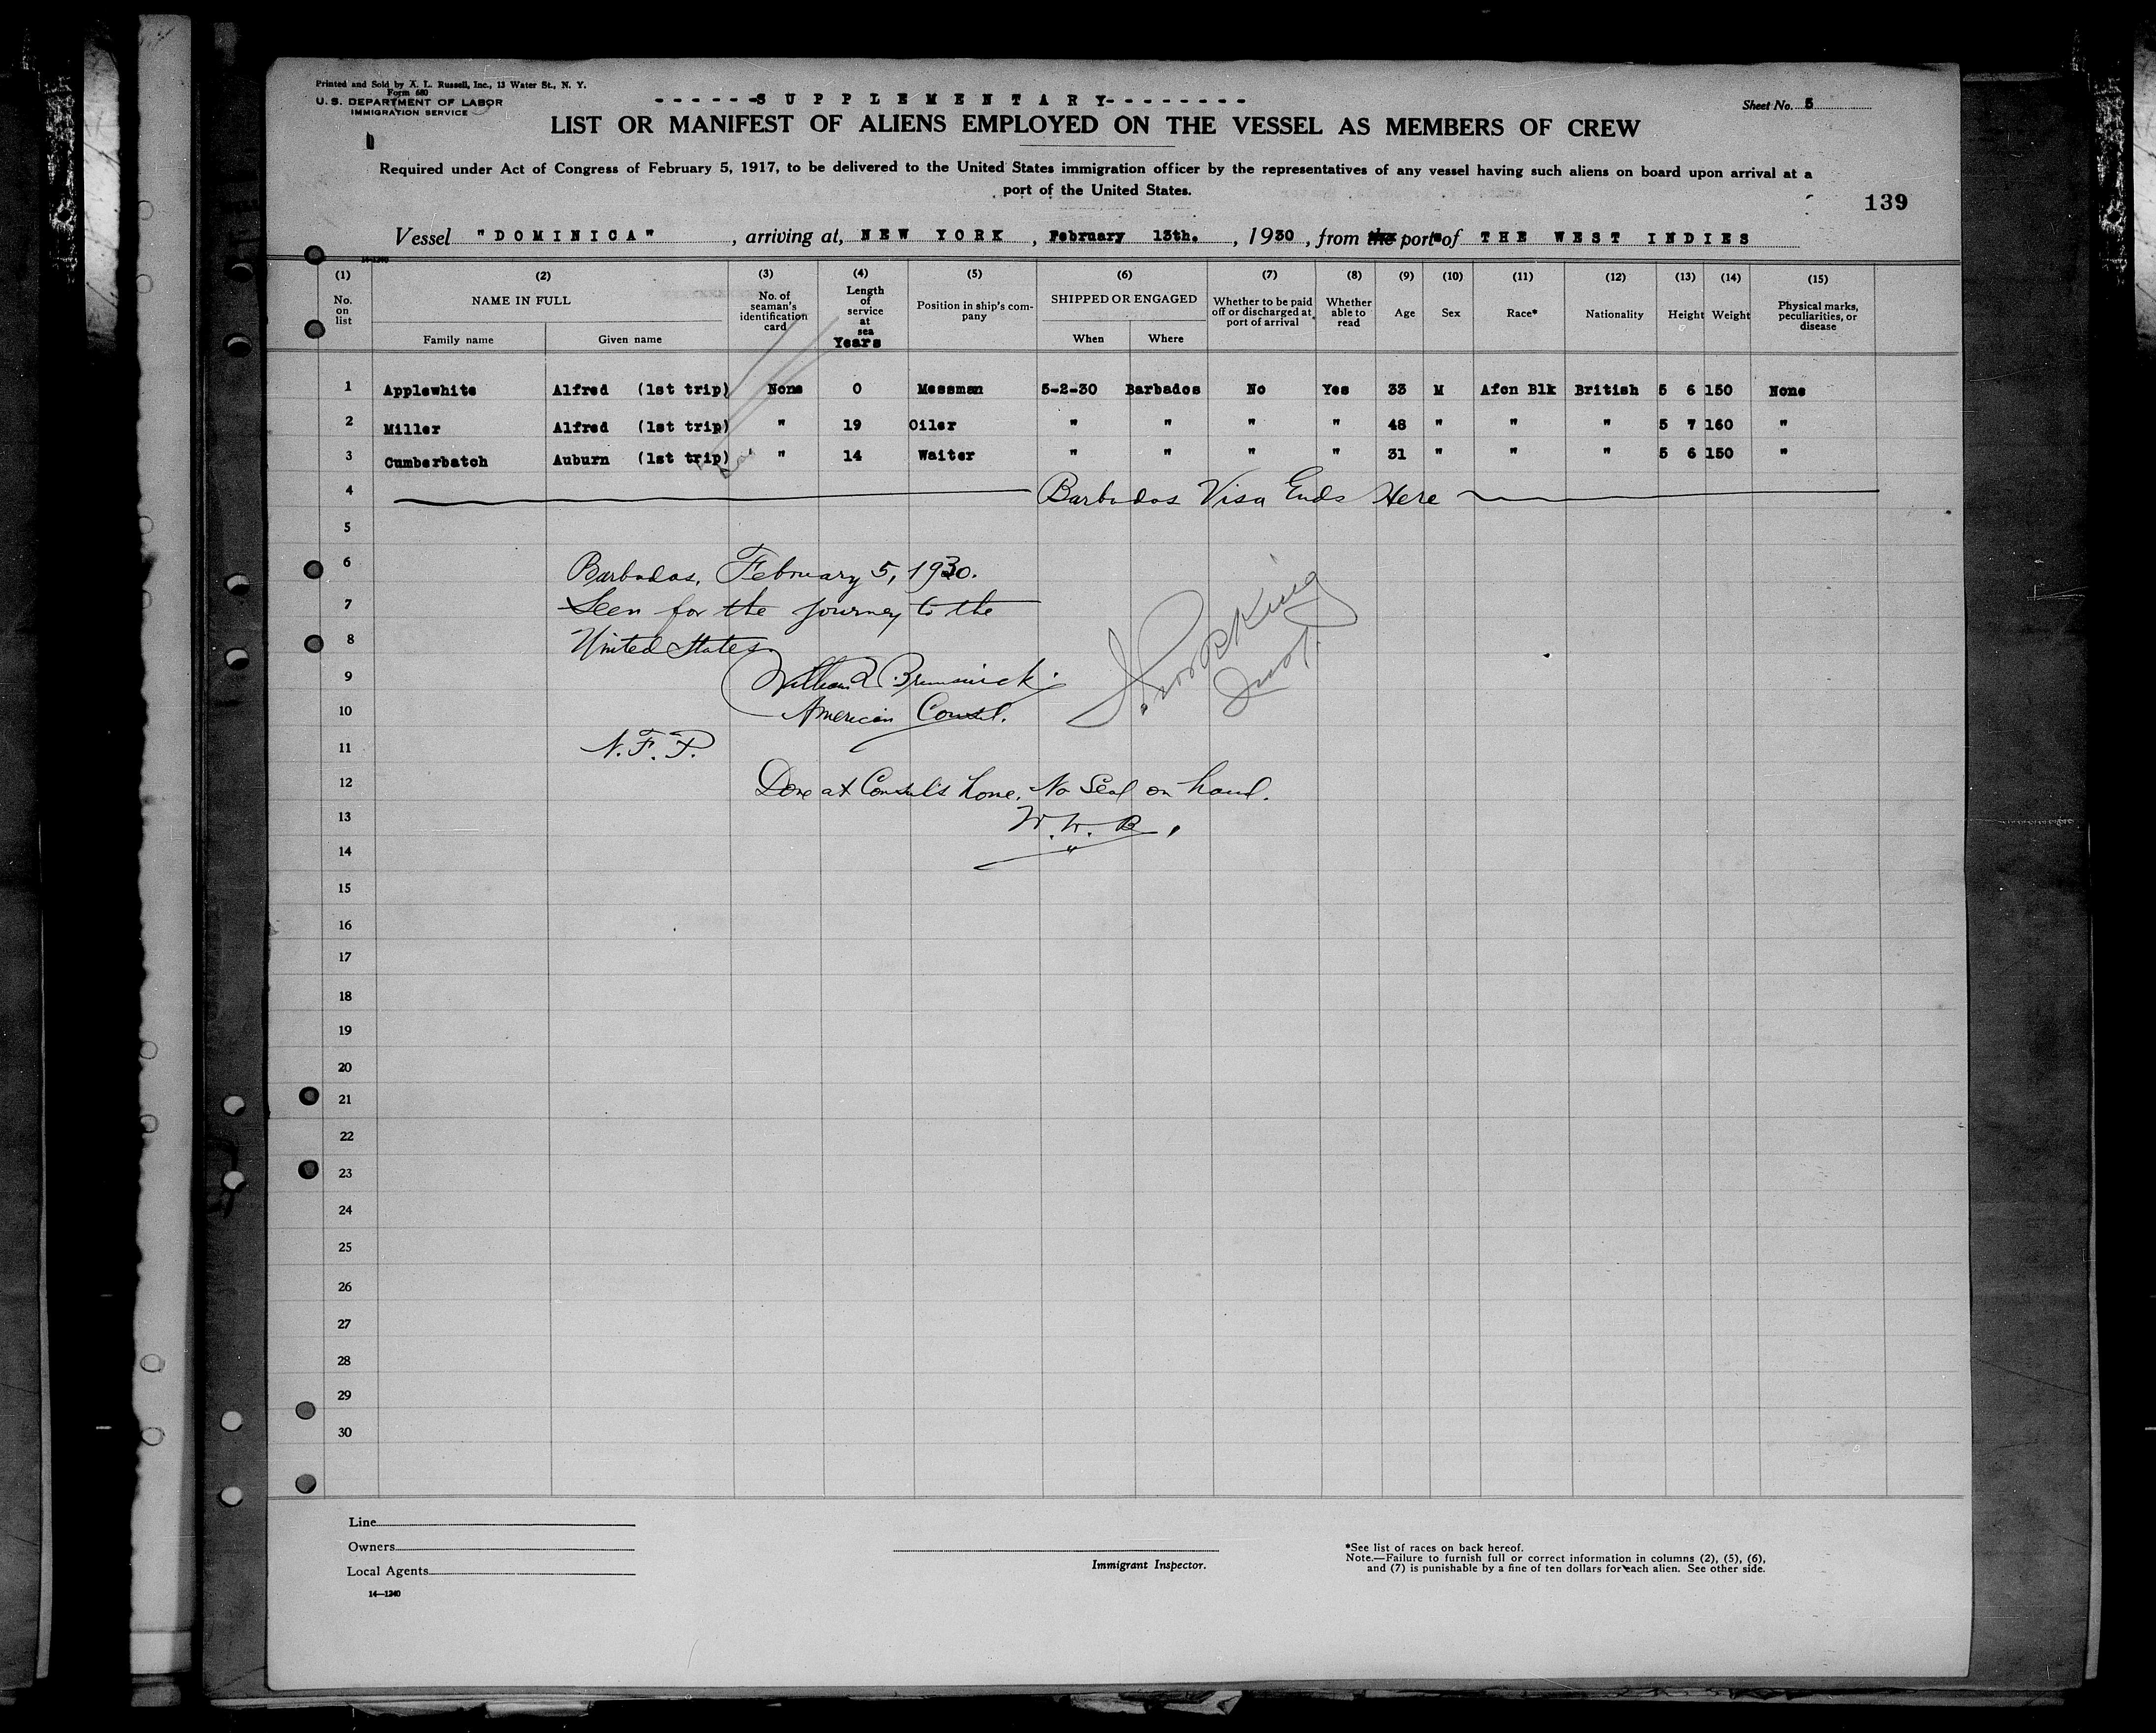 Printed and Sold by A. L. Russell, Inc., 13 Water St., N. Y.
Form 680
U. S. DEPARTMENT OF LABOR
IMMIGRATION SERVICE
- - - - - -S U P P L E M E N T A R Y- - - - - - - -
Sheet No. 5
LIST OR MANIFEST OF ALIENS EMPLOYED ON THE VESSEL AS MEMBERS OF CREW
Required under Act of Congress of February 5, 1917, to be delivered to the United States immigration officer by the representatives of any vessel having such aliens on board upon arrival at a
port of the United States.
139
Vessel "DOMINICA", arriving at, NEW YORK, February 13th., 1930, from the ports of THE WEST INDIES
14-1240
(1) (2) (3) (4) (5) (6) (7) (8) (9) (10) (11) (12) (13) (14) (15)
No. on list NAME IN FULL Family name Given name No. of seaman's identification card Length of service at sea Years Position in ship's company SHIPPED OR ENGAGED When Where Whether to be paid off or discharged at port of arrival Whether able to read Age Sex Race* Nationality Height Weight Physical marks, peculiarities, or disease
1 Applewhite Alfred (1st trip) None 0 Messman 5-2-30 Barbados No Yes 33 M Afcn Blk British 5 6 150 None
2 Miller Alfred (1st trip) " 19 Oiler " " " " 48 " " " 5 7 160 "
3 Cumberbatch Auburn (1st trip) " 14 Waiter " " " " 31 " " " 5 6 150 "
4 Barbados Visa Ends Here
5
6 Barbados, February 5, 1930.
7 Seen for the journey to the
8 United States
9 Brunswick
10 American Consul.
11 N. F. P.
12 Done at Consul's home. No Seal on hand.
13 W. W. B.
14
15
16
17
18
19
20
21
22
23
24
25
26
27
28
29
30
Line
Owners
Local Agents
14—1240
Immigrant Inspector.
*See list of races on back hereof.
Note.—Failure to furnish full or correct information in columns (2), (5), (6),
and (7) is punishable by a fine of ten dollars for each alien. See other side.